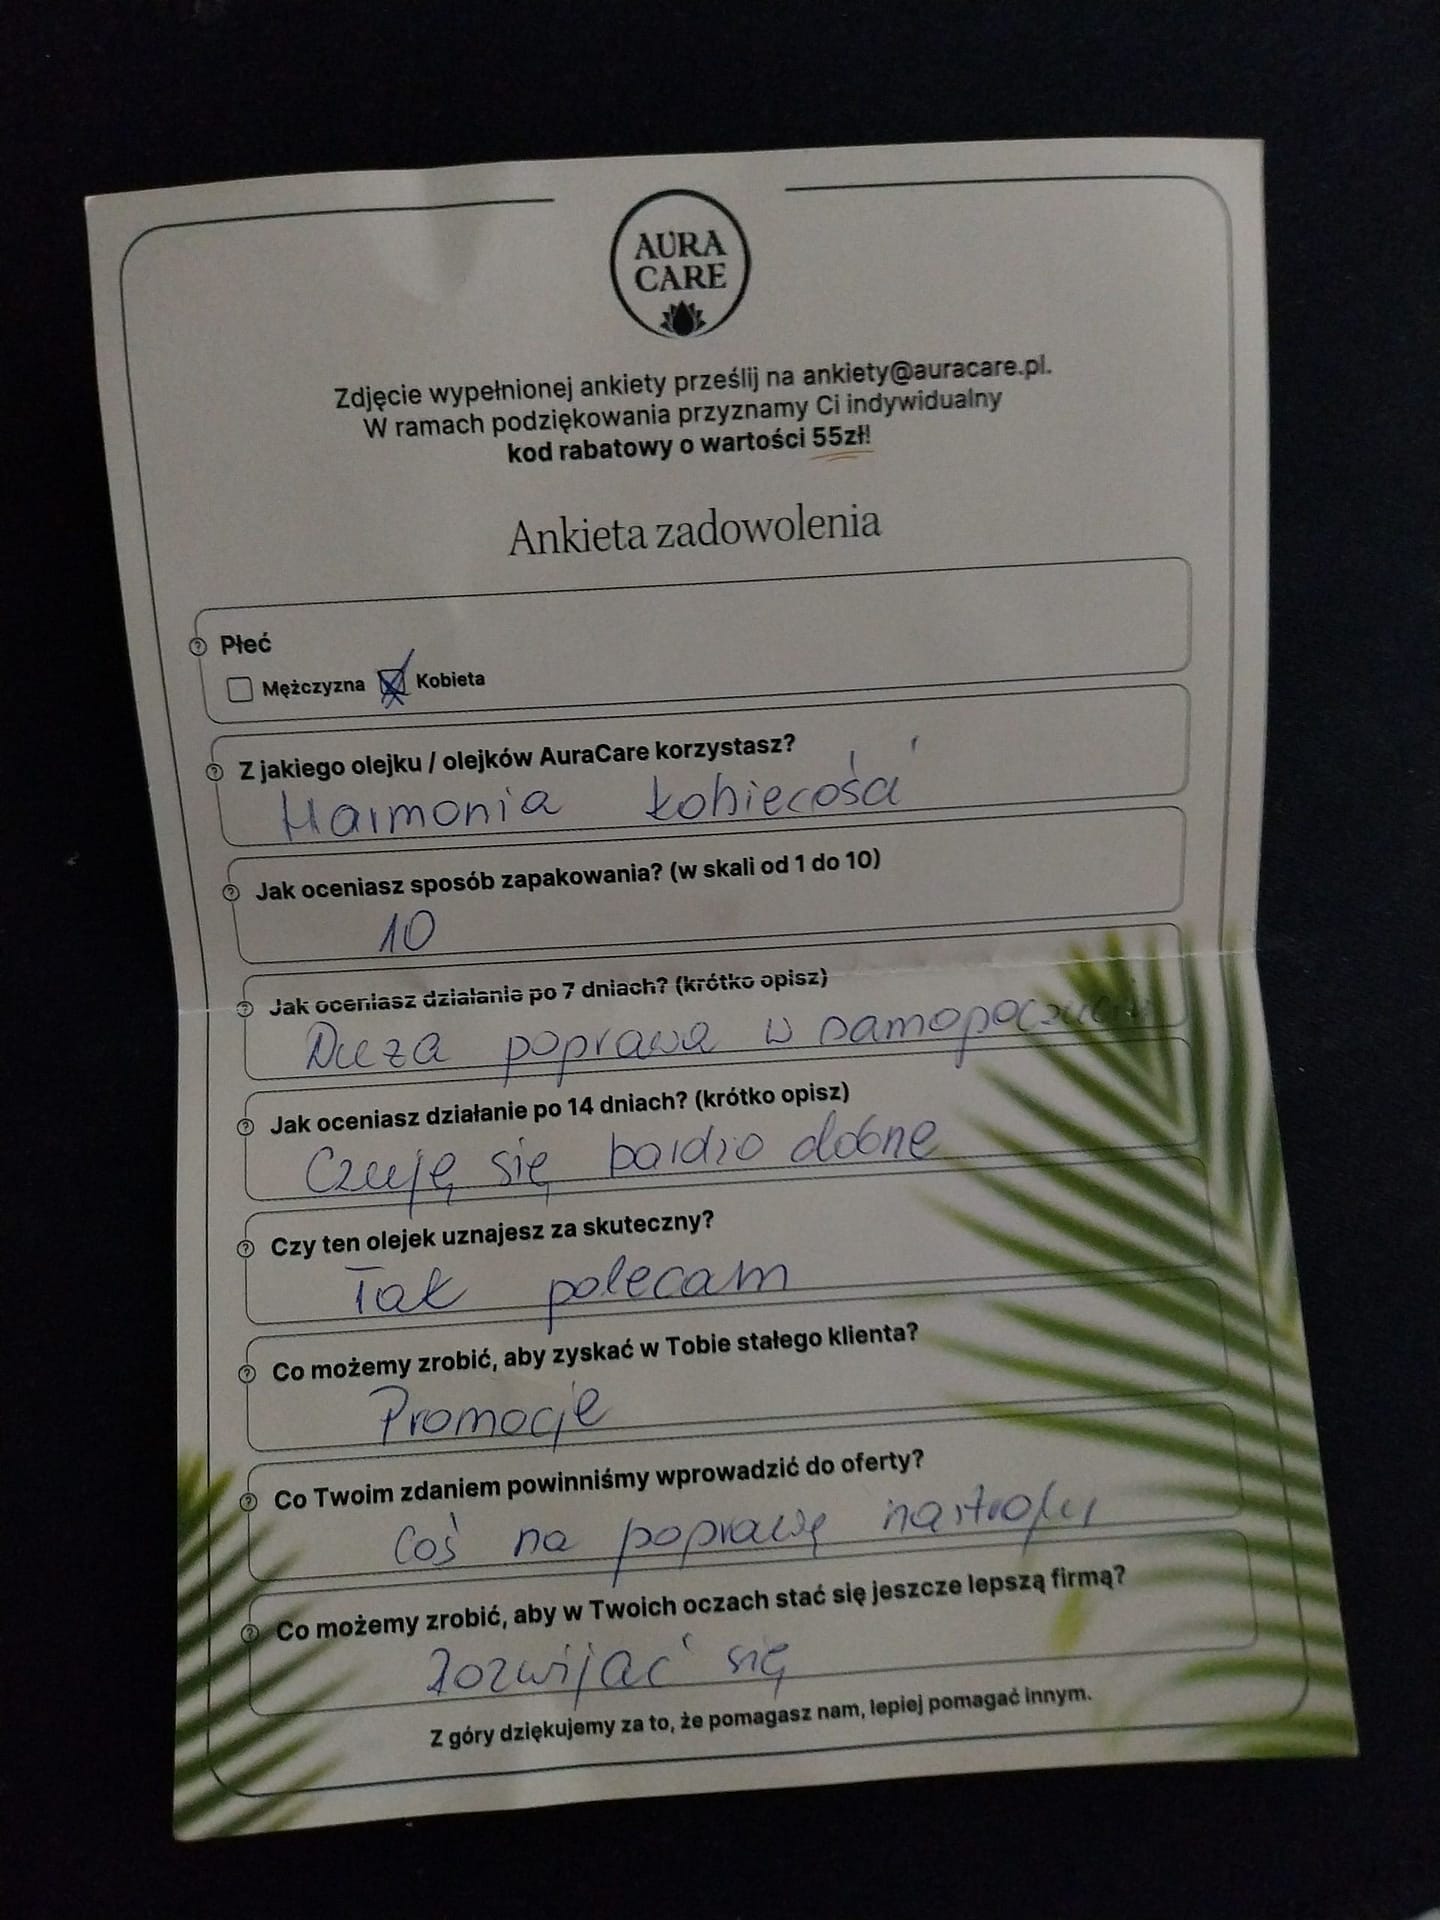 AURA
CARE
Zdjęcie wypełnionej ankiety prześlij na ankiety@auracare.pl.
W ramach podziękowania przyznamy Ci indywidualny
kod rabatowy o wartości 55zł!
Ankieta zadowolenia
Płeć
Mężczyzna Kobieta
Z jakiego olejku / olejków AuraCare korzystasz?
Harmonia kobiecości
Jak oceniasz sposób zapakowania? (w skali od 1 do 10)
10
Jak oceniasz działanie po 7 dniach? (krótko opisz)
Duża poprawa w samopoczuciu
Jak oceniasz działanie po 14 dniach? (krótko opisz)
Czuję się bardzo dobrze
Czy ten olejek uznajesz za skuteczny?
Tak polecam
Co możemy zrobić, aby zyskać w Tobie stałego klienta?
Promocje
Co Twoim zdaniem powinniśmy wprowadzić do oferty?
Coś na poprawę nastroju
Co możemy zrobić, aby w Twoich oczach stać się jeszcze lepszą firmą?
Rozwijać się
Z góry dziękujemy za to, że pomagasz nam, lepiej pomagać innym.